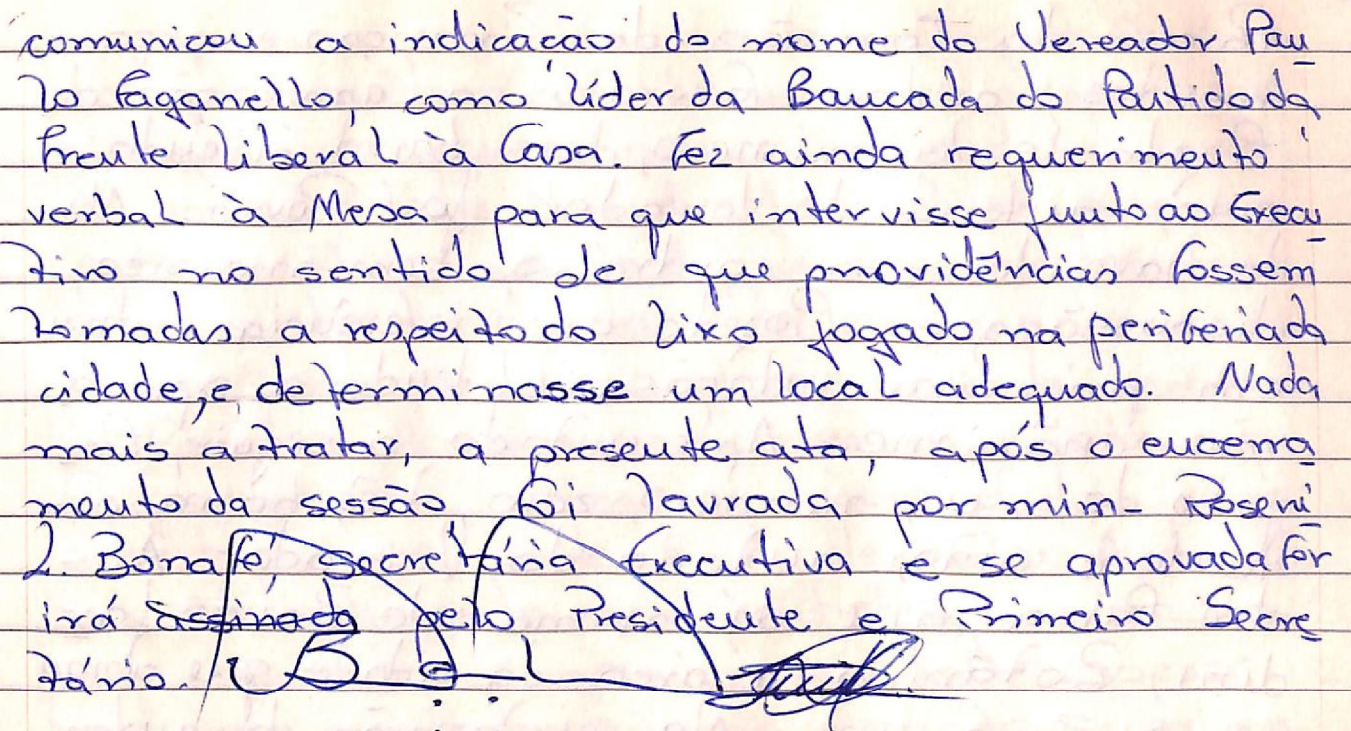 comunicou a indicação do nome do Vereador Pau
lo Faganello, como líder da Bancada do Partido da
Frente liberal à Casa. Fez ainda requerimento
verbal à Mesa para que intervisse junto ao Execu
tivo no sentido de que providências fossem
tomadas a respeito do lixo jogado na periferia da
cidade, e determinasse um local adequado. Nada
mais a tratar, a presente ata, após o encerra
mento da sessão, foi lavrada por mim- Roseni
L. Bonafé, secretária Executiva e se aprovada for
irá assinada pelo Presidente e Primeiro Secre
tário.